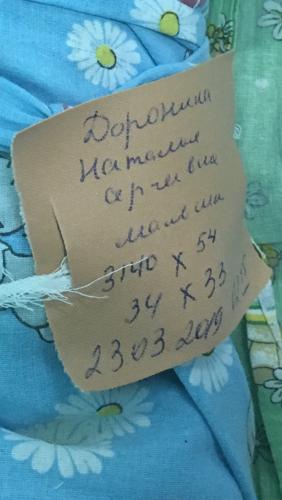 Доронина
Наталья
Сергеевна
мальчик
3140 x 54
34 x 33
23 03 2019